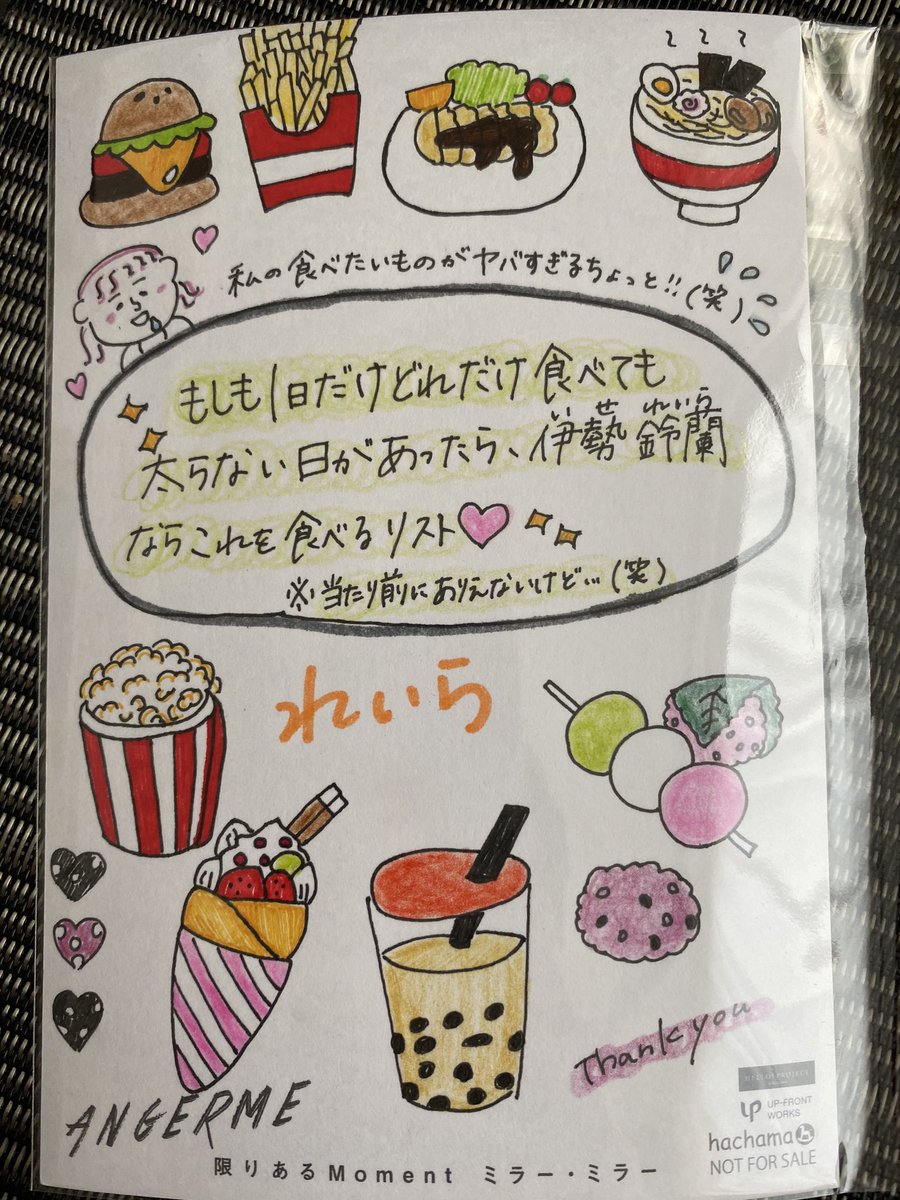 私の食べたいものがヤバすぎるちょっと!!(笑)
もしも1日だけどれだけ食べても
いせ れいら
太らない日があったら、伊勢鈴蘭
ならこれを食べるリスト
※当たり前にありえないけど…(笑)
れいら
Thank you
ANGERME
UP-FRONT
WORKS
hachama
NOT FOR SALE
限りあるMoment ミラー・ミラー